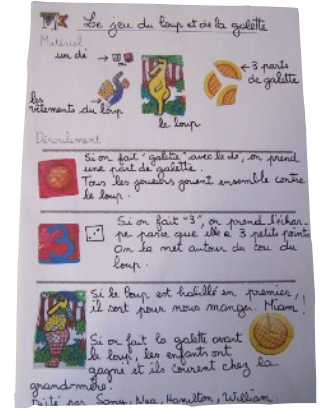 Le jeu du loup et de la galette
Matériel
un dé
3 parts
de galette
les
vêtements du loup
le loup
Déroulement :
Si on fait "galette" avec le dé, on prend
une part de galette.
Tous les joueurs jouent ensemble contre
le loup.
3
Si on fait "3", on prend l'échar-
pe parce que elle a 3 petits points
On la met autour du cou du
loup.
Si le loup est habillé en premier,
il sort pour nous manger. Miam!
Si on fait la galette avant
le loup, les enfants ont
gagné et ils courent chez la
grand-mère.
par Hamilton, William.